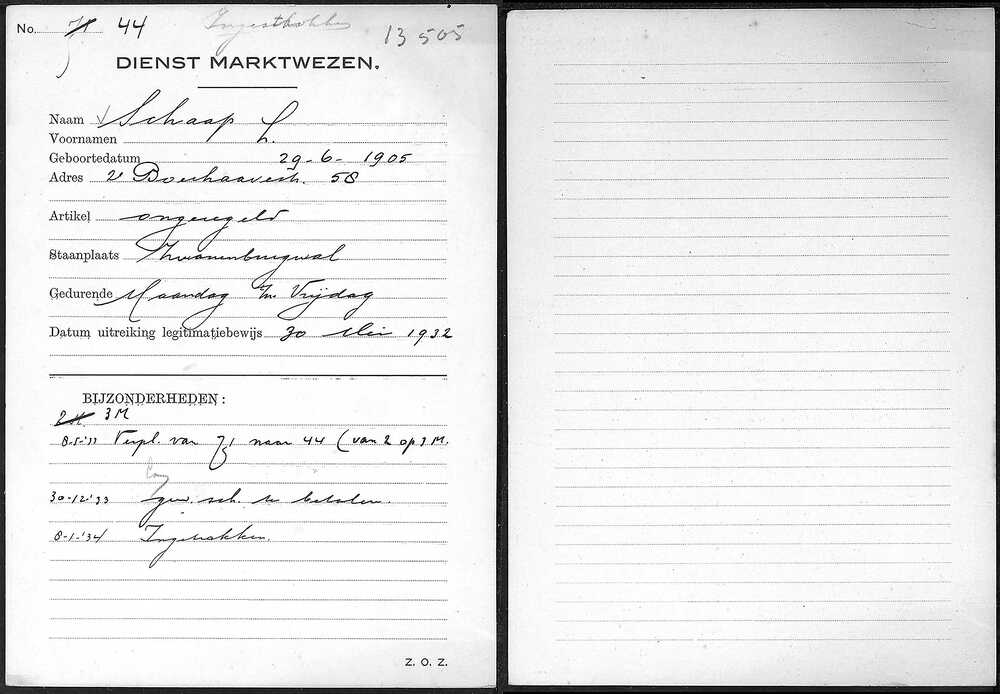 No. 71 44 Ingetrokken 13505
DIENST MARKTWEZEN.
Naam Schaap
Voornamen L.
Geboortedatum 29-6-1905
Adres 2e Boerhaavestr. 58
Artikel ongeregeld
Staanplaats Zwanenburgwal
Gedurende Maandag t/m Vrijdag
Datum uitreiking legitimatiebewijs 30 Mei 1932
BIJZONDERHEDEN:
2 M. 3 M
8-5-'33 Verpl. van 71 naar 44 (van 2 op 3 M.
30-12-'33 gew. sch. te betalen.
8-1-'34 Ingetrokken.
Z. O. Z.